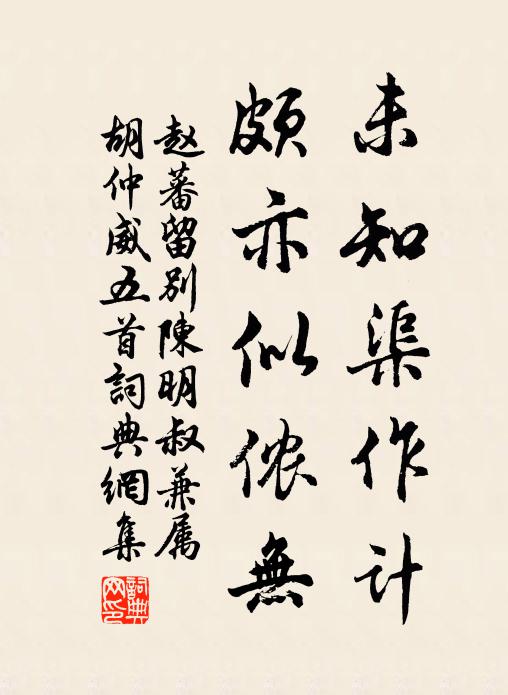 未知渠作计
颇亦似侬無
赵蕃留别陳明叔兼属
胡仲威五首詞典網集
詞典
网印